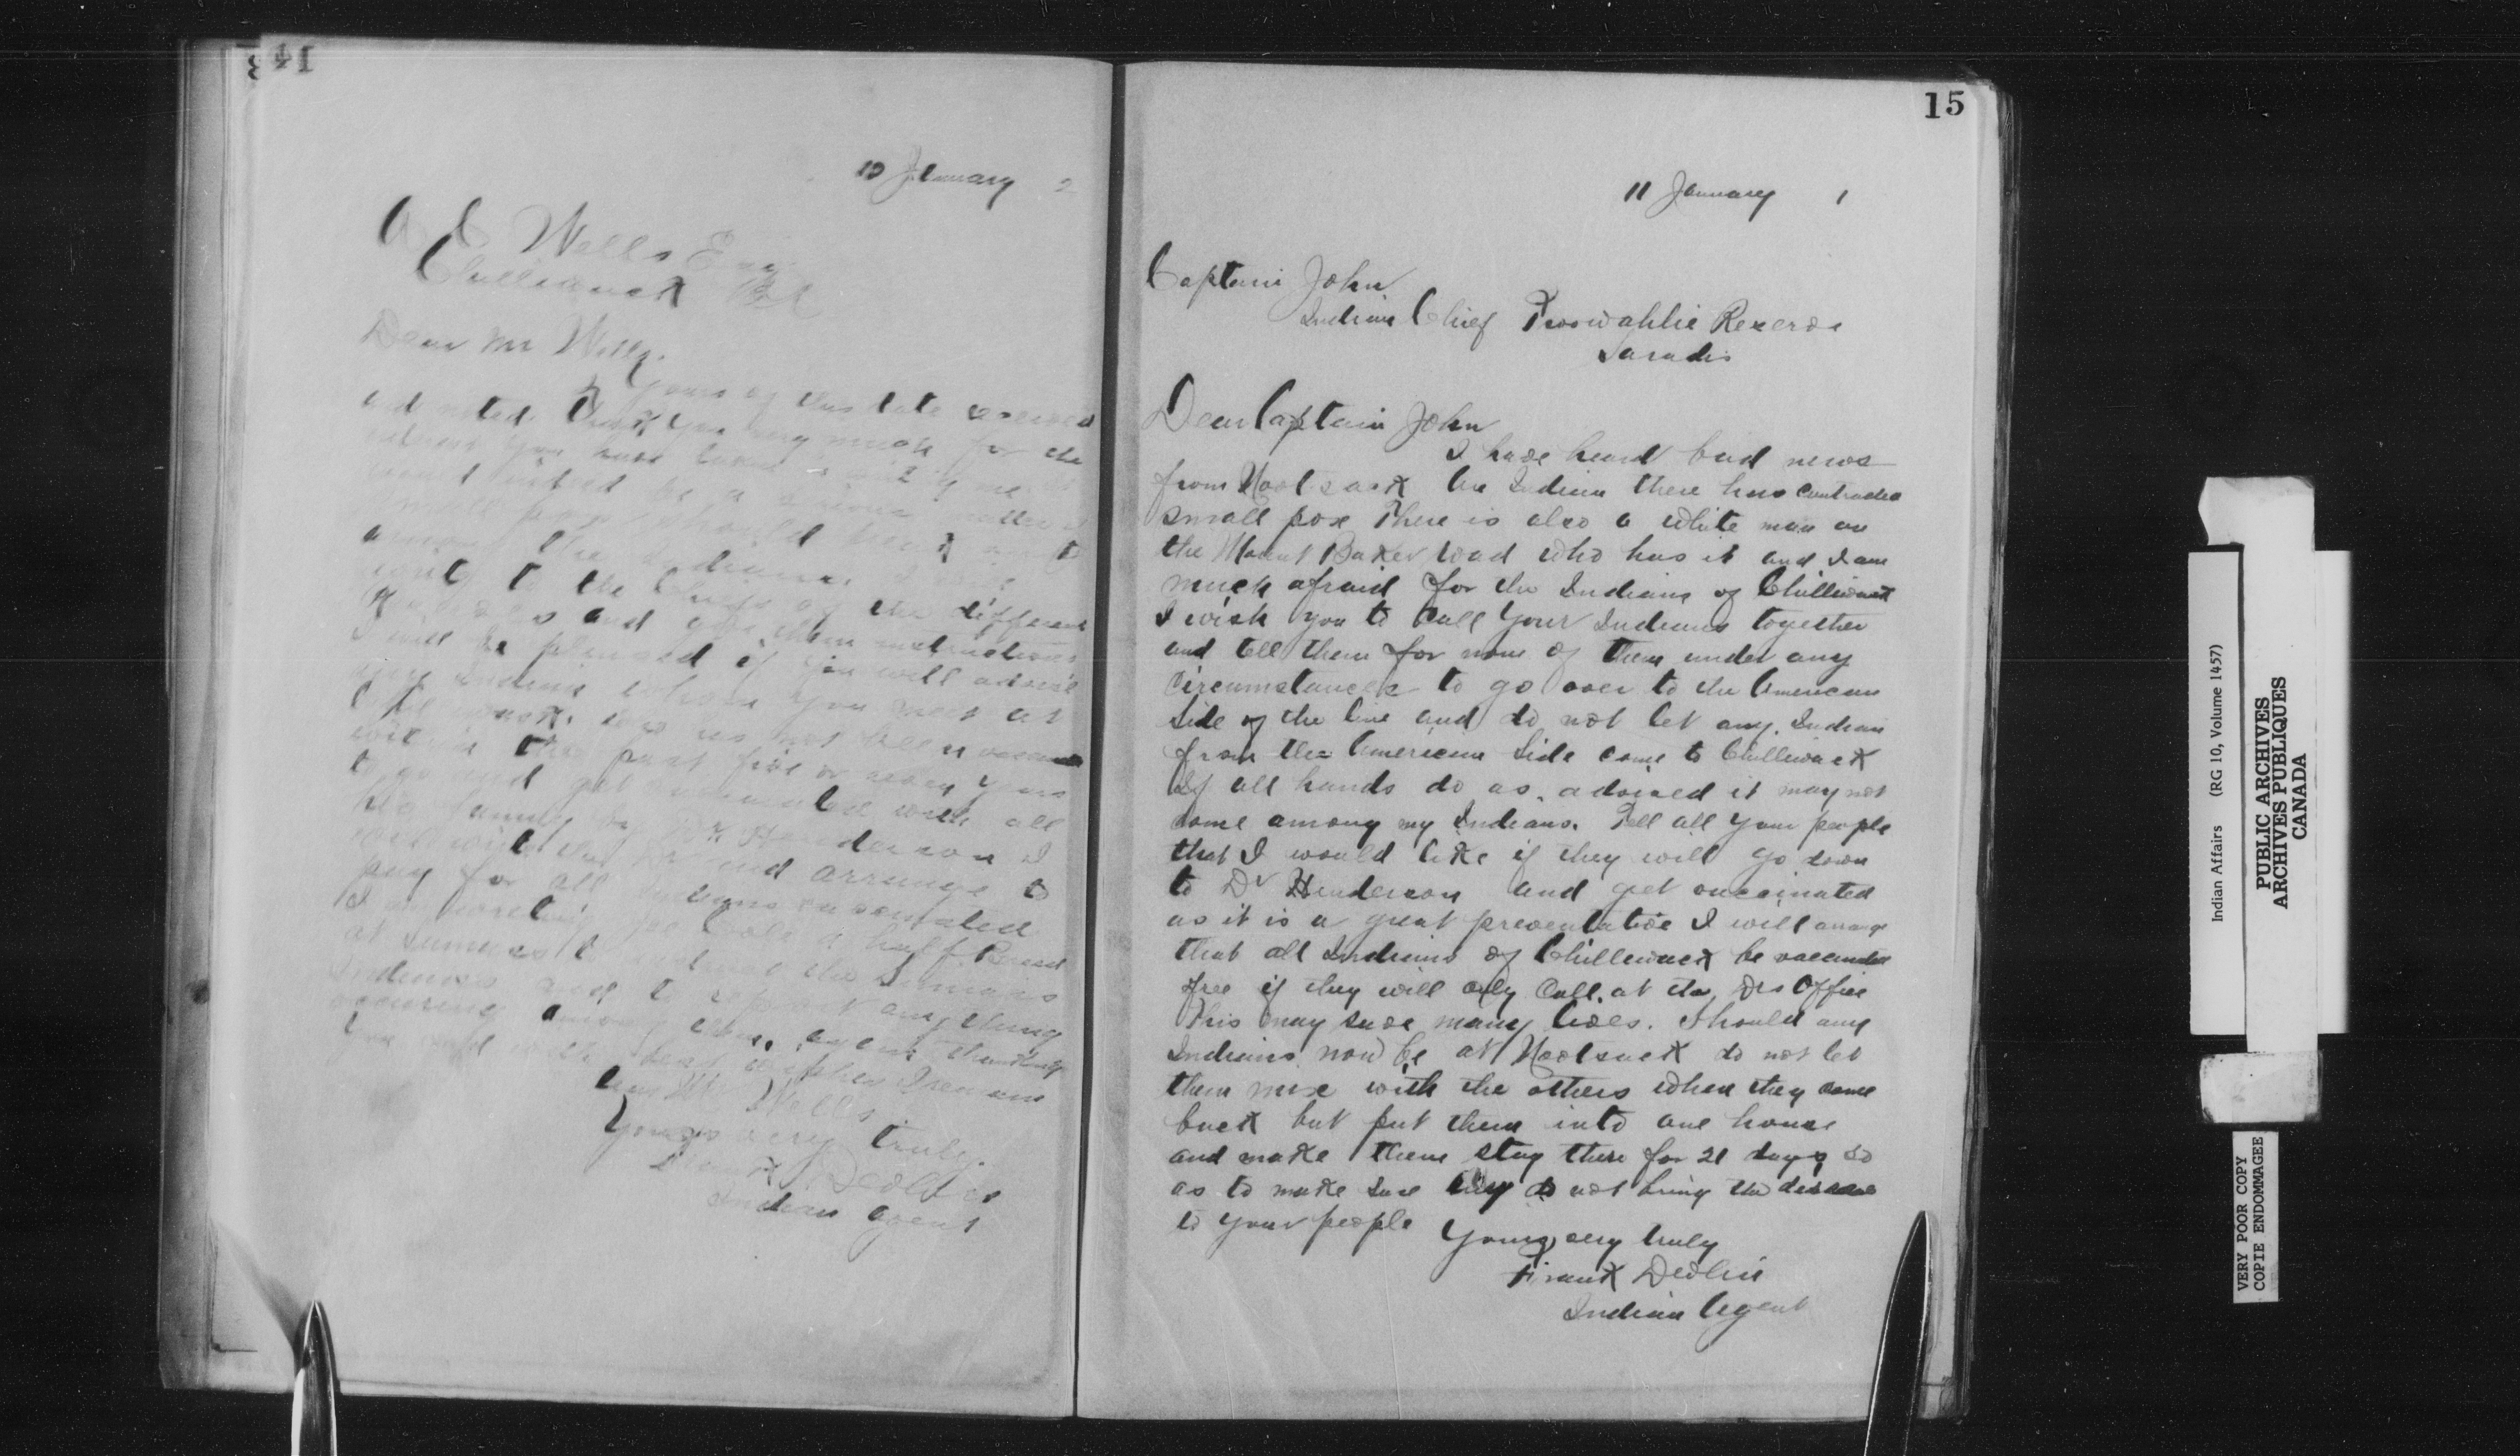 14
10 January 2
A C Wells Esq
Chilliwack BC
Dear Mr Wells.
Yours of this date received
and noted. Thank you very much for the
interest you have taken
would indeed be a serious matter if
small pox should break out
among the Indians. I will
write to the Chiefs of the different
Reserves and give them instructions
I will be pleased if you will advise
any Indian whom you meet at
Chilliwack, who has not been vaccinated
within the past five or seven years
to go and get vaccinated with all
his family by Dr Henderson I
will write the Dr and arrange to
pay for all Indians vaccinated
I am a half Breed
at Sumass to the Sumass
Indians and to report anything
occuring among them, again thanking
you and with best wishes I remain
Dear Mr Wells
Yours very truly.
Frank Devlin
Indian Agent
15
11 January 1
Captain John
Indian Chief Reserve
Sardis
Dear Captain John
I have heard bad news
from Nootsack An Indian there has contracted
small pox There is also a white man on
the Mount Baker road who has it and I am
much afraid for the Indians of Chilliwack
I wish you to call your Indians together
and tell them for none of them under any
circumstances to go over to the American
side of the line and do not let any Indian
from the American side come to Chilliwack
If all hands do as advised it may not
come among my Indians. Tell all your people
that I would like if they will go down
to Dr Henderson and get vaccinated
as it is a great preventative I will arrange
that all Indians of Chilliwack be vaccinated
free if they will only call at the Drs Office
This may save many lives. Should any
Indians now be at Nootsack do not let
them mix with the others when they come
back but put them into one house
and make them stay there for 21 days so
as to make sure they do not bring the disease
to your people
Yours very truly
Frank Devlin
Indian Agent
Indian Affairs (RG 10, Volume 1457)
PUBLIC ARCHIVES
ARCHIVES PUBLIQUES
CANADA
VERY POOR COPY
COPIE ENDOMMAGEE